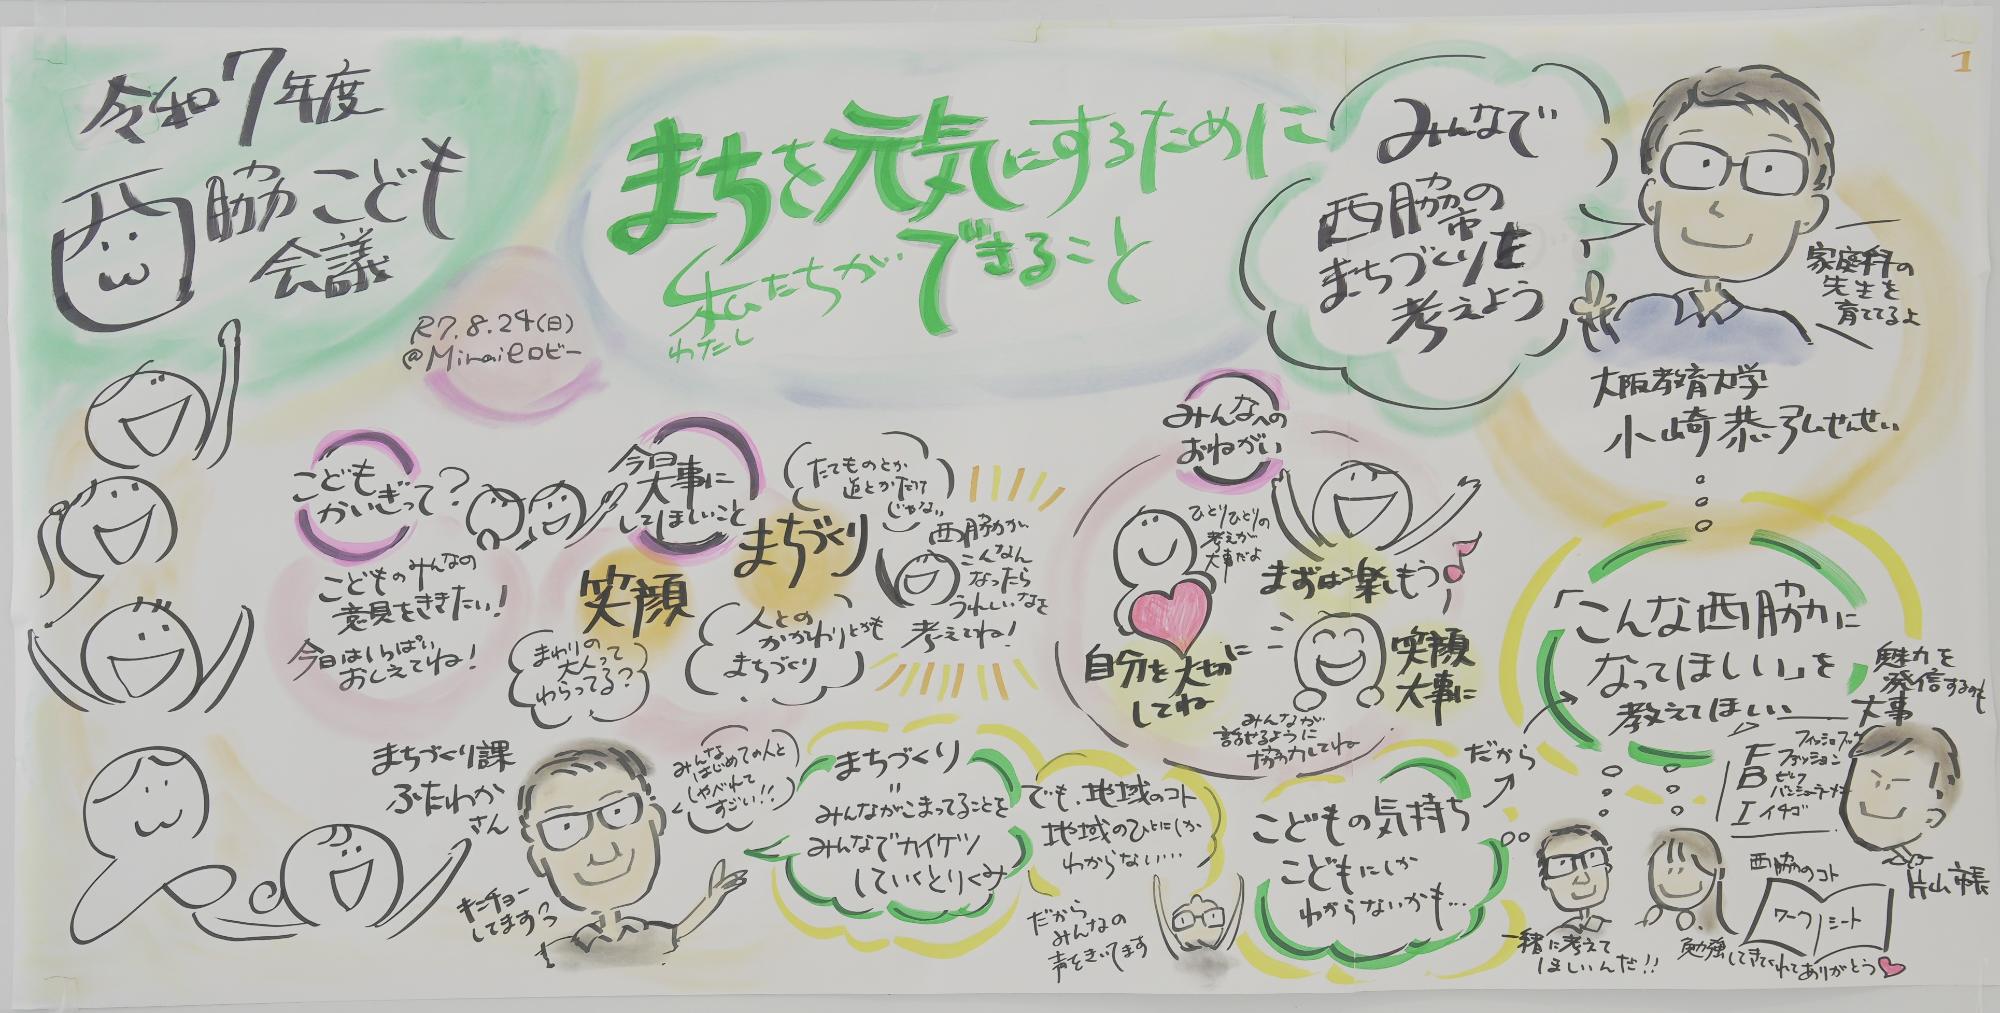 令和7年度
西脇こども
会議
R7.8.24(日)
@Miraieロビー
まちを元気にするために
私たちができること
わたし
みんなで
西脇市の
まちづくりを
考えよう
1
家庭科の
先生を
育ててるよ
大阪教育大学
小崎恭弘せんせい
こども
かいぎって?
こどものみんなの
意見をききたい!
今日はいっぱい
おしえてね!
今日大事に
してほしいこと
笑顔
まわりの
大人って
わらってる?
たてものとか
道とかだけ
じゃない
まちづくり
人との
かかわりとかも
まちづくり
西脇が
こんなん
なったら
うれしいなを
考えてね!
みんなへの
おねがい
ひとりひとりの
考えが
大事だよ
自分を大切に
してね
まずは楽しもう
笑顔
大事に
みんなが
話せるように
協力してね
「こんな西脇に
なってほしい」を
教えてほしい
魅力を
発信するのも
大事
F ファッション
B ビーフ
I イチゴ
片山市長
まちづくり課
ふたわか
さん
キンチョー
してます?
みんな
はじめての人と
しゃべれて
すごい!!
まちづくり
"
みんながこまってることを
みんなでカイケツ
していくとりくみ
でも、地域のコト
地域のひとにしか
わからない…
だから
みんなの
声をきいてます
こどもの気持ち
こどもにしか
わからないかも…
だから
一緒に考えて
ほしいんだ!!
西脇のコト
ワークシート
勉強してきてくれてありがとう